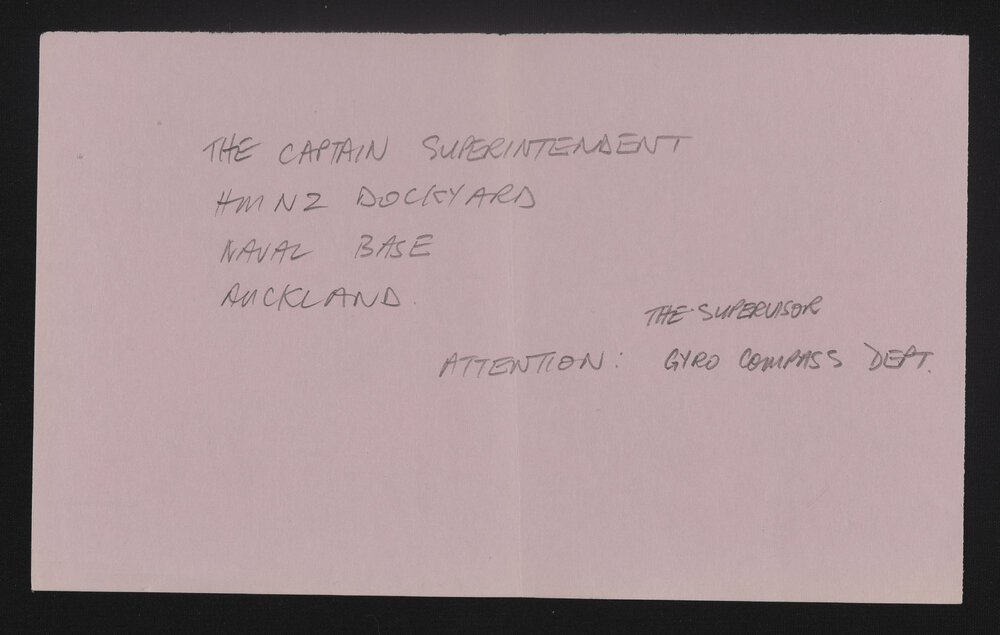 THE CAPTAIN SUPERINTENDENT
HMNZ DOCKYARD
NAVAL BASE
AUCKLAND.
THE SUPERVISOR
ATTENTION: GYRO COMPASS DEPT.